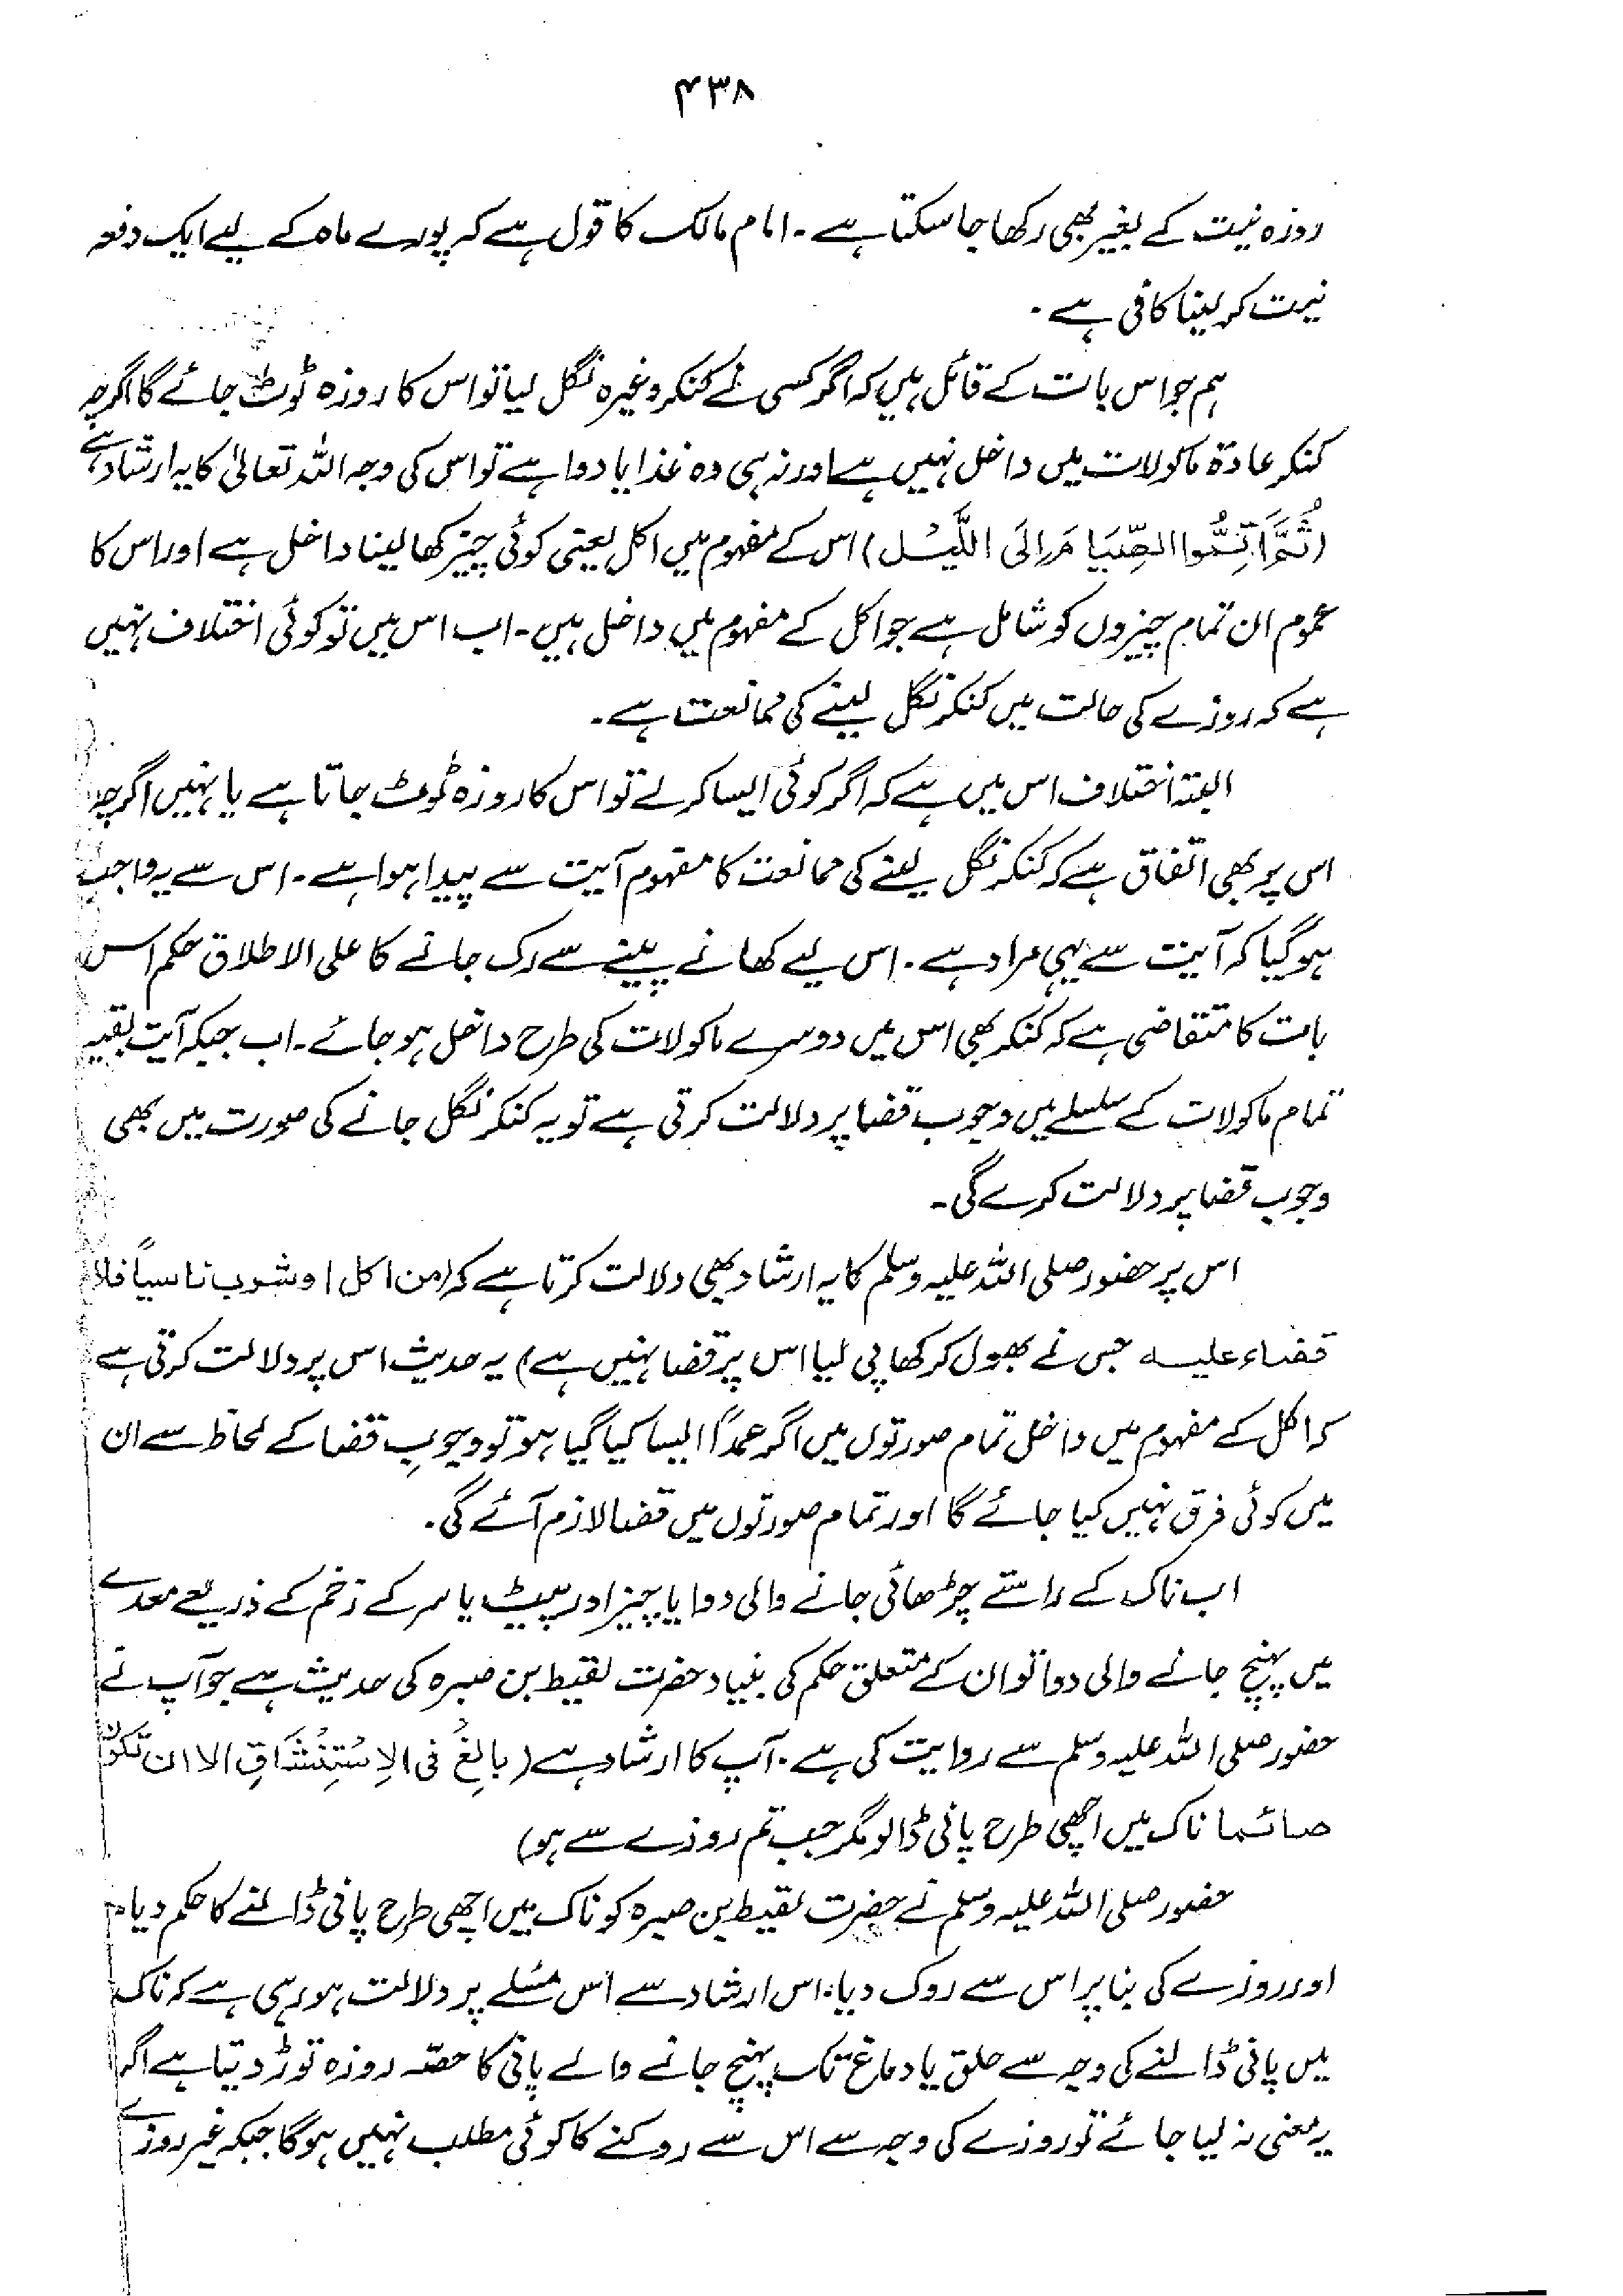 ۴۳۸
روزہ نیت کے بغیر بھی رکھا جا سکتا ہے۔ امام مالک کا قول ہے کہ پورے ماہ کے لیے ایک دفعہ
نیت کر لینا کافی ہے۔
ہم جو اس بات کے قائل ہیں کہ اگر کسی نے کنکر وغیرہ نگل لیا تو اس کا روزہ ٹوٹ جائے گا اگرچہ
کنکر عادۃ ماکولات میں داخل نہیں ہے اور نہ ہی وہ غذا یا دوا ہے تو اس کی وجہ اللہ تعالیٰ کا یہ ارشاد ہے
(ثُمَّ اَتِمُّوا الصِّیَامَ اِلَی اللَّیْل) اس کے مفہوم میں اکل یعنی کوئی چیز کھا لینا داخل ہے اور اس کا
عموم ان تمام چیزوں کو شامل ہے جو اکل کے مفہوم میں داخل ہیں۔ اب اس میں تو کوئی اختلاف نہیں
ہے کہ روزے کی حالت میں کنکر نگل لینے کی ممانعت ہے۔
البتہ اختلاف اس میں ہے کہ اگر کوئی ایسا کر لے تو اس کا روزہ ٹوٹ جاتا ہے یا نہیں اگرچہ
اس پر بھی اتفاق ہے کہ کنکر نگل لینے کی ممانعت کا مفہوم آیت سے پیدا ہوا ہے۔ اس سے یہ واجب
ہو گیا کہ آیت سے یہی مراد ہے۔ اس لیے کھانے پینے سے رک جانے کا علی الاطلاق حکم اس
بات کا متقاضی ہے کہ کنکر بھی اس میں دوسرے ماکولات کی طرح داخل ہو جائے۔ اب جبکہ آیت بقیہ
تمام ماکولات کے سلسلے میں وجوب قضا پر دلالت کرتی ہے تو یہ کنکر نگل جانے کی صورت میں بھی
وجوب قضا پر دلالت کرے گی۔
اس پر حضور صلی اللہ علیہ وسلم کا یہ ارشاد بھی دلالت کرتا ہے کہ (من اکل او شرب ناسیاً فلا
قضاء علیہ جس نے بھول کر کھا پی لیا اس پر قضا نہیں ہے) یہ حدیث اس پر دلالت کرتی ہے
کہ اکل کے مفہوم میں داخل تمام صورتوں میں اگر عمداً ایسا کیا گیا ہو تو وجوبِ قضا کے لحاظ سے ان
میں کوئی فرق نہیں کیا جائے گا اور تمام صورتوں میں قضا لازم آئے گی۔
اب ناک کے راستے چڑھائی جانے والی دوا یا چیز اور پیٹ یا سر کے زخم کے ذریعے معدے
میں پہنچ جانے والی دوا تو ان کے متعلق حکم کی بنیاد حضرت لقیط بن صبرہ کی حدیث ہے جو آپ نے
حضور صلی اللہ علیہ وسلم سے روایت کی ہے۔ آپ کا ارشاد ہے (بالِغْ فی الِاسْتِنْشَاقِ الا ان تکون
صائما ناک میں اچھی طرح پانی ڈالو مگر جب تم روزے سے ہو)
حضور صلی اللہ علیہ وسلم نے حضرت لقیط بن صبرہ کو ناک میں اچھی طرح پانی ڈالنے کا حکم دیا
اور روزے کی بنا پر اس سے روک دیا، اس ارشاد سے اس مسئلے پر دلالت ہو رہی ہے کہ ناک
میں پانی ڈالنے کی وجہ سے حلق یا دماغ تک پہنچ جانے والے پانی کا حصّہ روزہ توڑ دیتا ہے اگر
یہ معنی نہ لیا جائے تو روزے کی وجہ سے اس سے روکنے کا کوئی مطلب نہیں ہوگا جبکہ غیر روزے